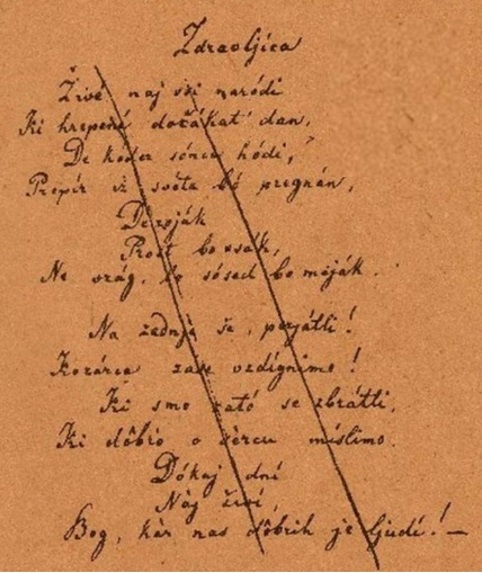 Zdravljica
Živé naj vsi naródi
Ki hrepené dočákat' dan,
De kóder sónce hódi,
Prepír iz svéta bó pregnán,
De roják
Prost bo vsák,
Ne vrág, le sósed bo mêják.
Na zadnje še, prijátli!
Kozárce zase vzdígnimo!
Ki smo zató se zbrátli,
Ki dôbro v sèrcu míslimo.
Dókaj dní
Nàj živí
Bog, kàr nas dôbrih je ljudí! —